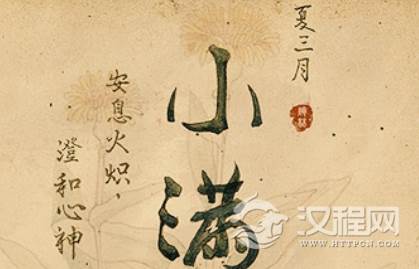 夏三月
小满
安息火炽，
澄和心神
汉程网
HTTPCN.COM